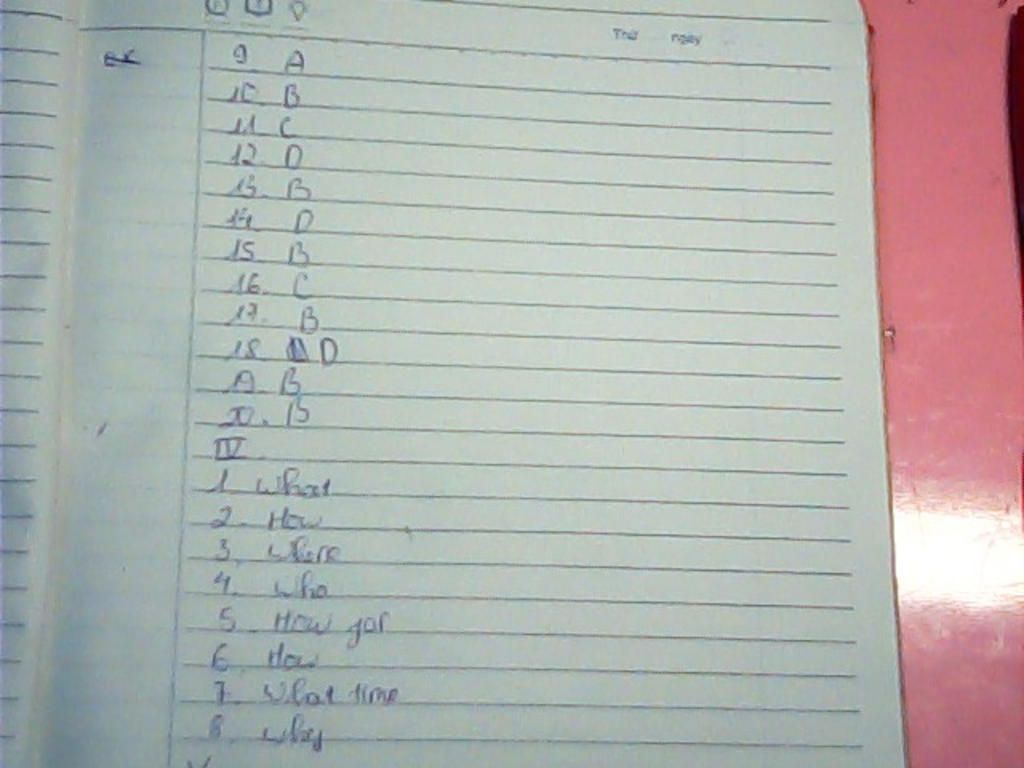 Thứ ngày
9 A
10. B
11 C
12 D
13. B
14 D
15 B
16. C
17. B
18 D
19 B
20. B
IV
1 What
2. How
3. Where
4. Who
5. How far
6 How
7. What time
8. why